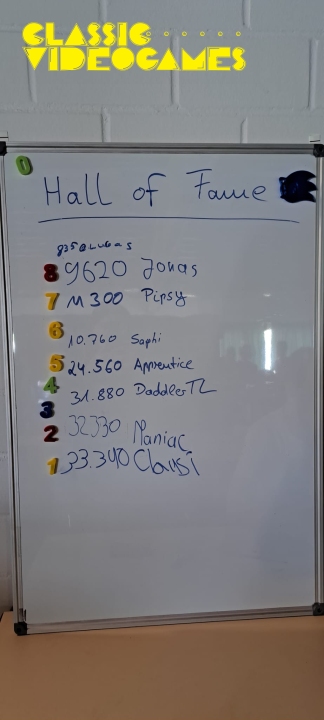 CLASSIC
VIDEOGAMES
0
Hall of Fame
8350 Lukas
8 9620 Jonas
7 11300 Pipsy
6 10.760 Sophi
5 24.560 Apprentice
4 31.880 DaddlerTL
3
2 32330 Maniac
1 33.340 Clausi